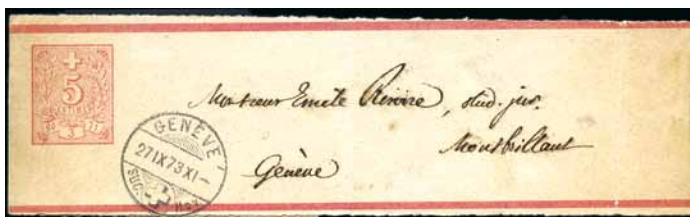 5
CENTIMES
GENÈVE
27 IX 73 XI -
SUC.
Monsieur Emile Rivoire, stud. jur.
Montbrillant
Genève